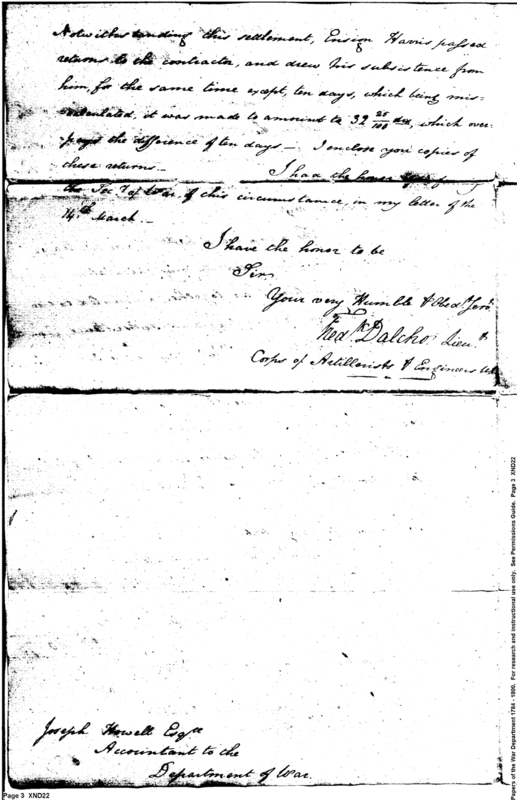 Notwithstanding this settlement, Ensign Harris passed
returns to the contractor, and drew his subsistence from
him, for the same time except, ten days, which being mis-
calculated, it was made to amount to 32 25/100 dolls, which over-
pays the difference of ten days—. I enclose you copies of
these returns.— I had the honor
the Secy of War, of this circumstance, in my letter of the
14th March.—
I have the honor to be
Sir
Your very Humble & Obedt Servt
Fredk Dalcho Lieut
Corps of Artillerists & Engineers
Joseph Howell Esqre
Accountant to the
Department of War.
Page 3 XND22
Papers of the War Department 1784 - 1800. For research and instructional use only. See Permissions Guide. Page 3 XND22